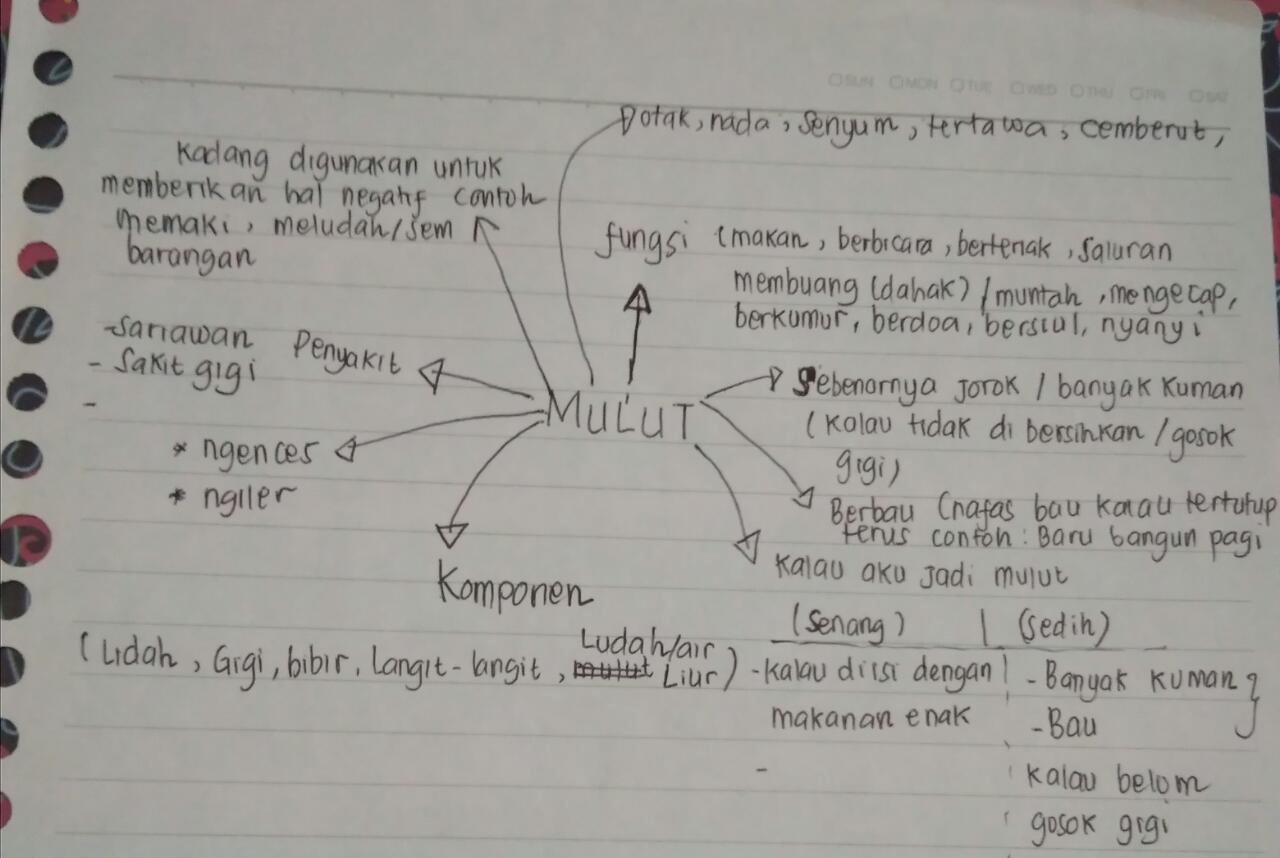 SUN MON TUE WED THU FRI SAT
Dotak, nada, senyum, tertawa, cemberut,
Kadang digunakan untuk
memberikan hal negatif contoh
memaki, meludah/sem
barangan
fungsi (makan, berbicara, berteriak, saluran
membuang (dahak) / muntah, mengecap,
berkumur, berdoa, bersiul, nyanyi
-Sariawan Penyakit
- Sakit gigi
-
MULUT
Sebenarnya jorok / banyak kuman
(kalau tidak di bersihkan /gosok
gigi)
* ngences
* ngiler
Berbau (nafas bau kalau tertutup
terus contoh: Baru bangun pagi
Kalau aku jadi mulut
Komponen
(Lidah, Gigi, bibir, Langit-langit, Ludah/air
Liur)
(Senang) | (sedih)
-kalau diisi dengan
makanan enak
-
- Banyak kuman
-Bau
kalau belom
gosok gigi